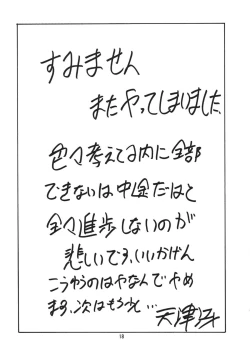 すみません
またやってしまいました。
色々考えてる内に全部
できないは中途だはと
全々進歩しないのが
悲しいです、いいかげん
こうゆうのはやなんでやめ
ます、次はもう
天津冴
18